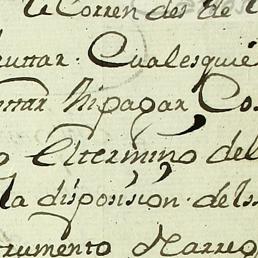 Corren des de
ruttar. Cualesquie
ottar Nipagar Co
o Eltermino del
la disposision. dels
trumento Narreg